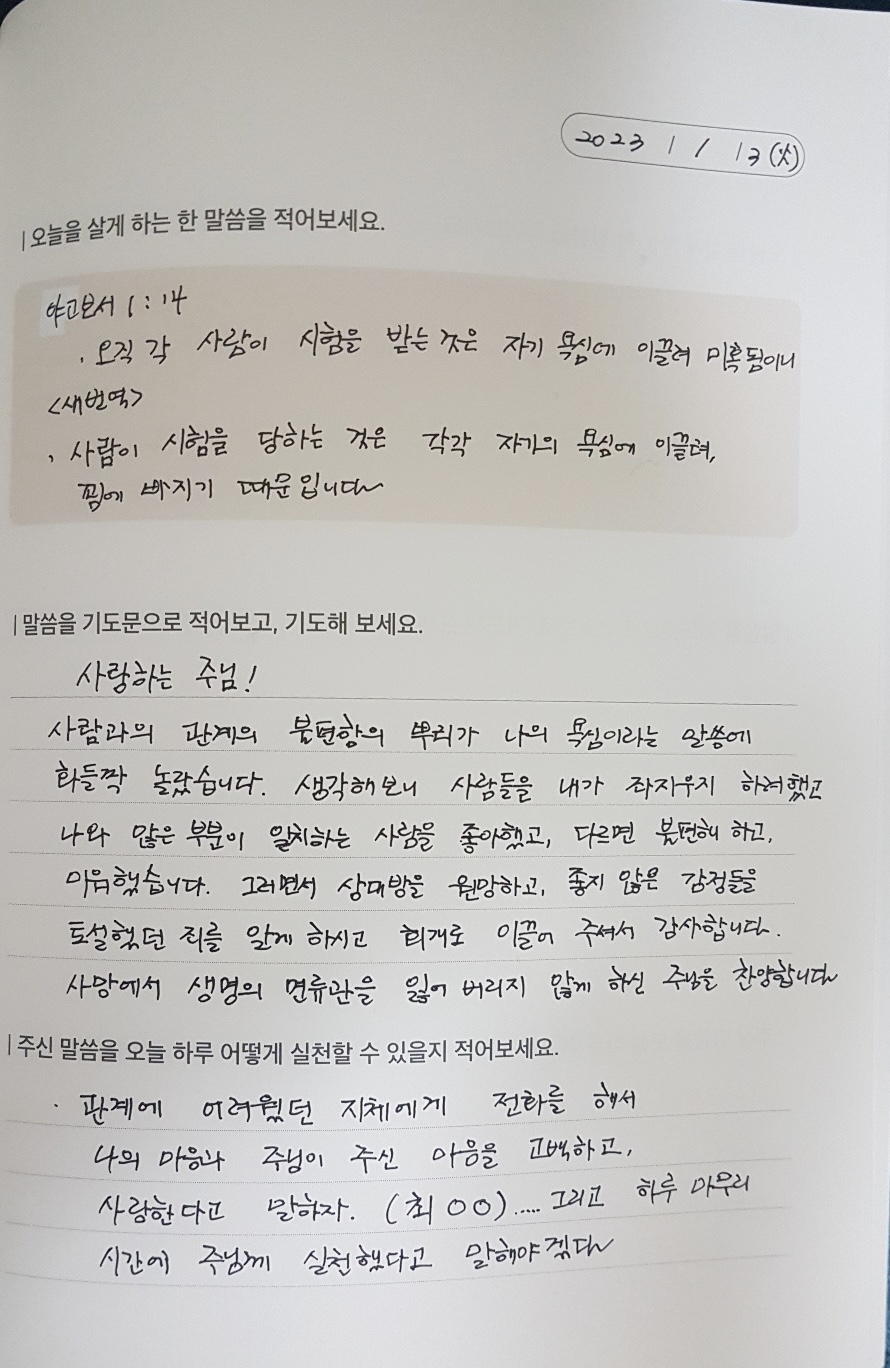 2023 1 / 13(火)
오늘을 살게 하는 한 말씀을 적어보세요.
야고보서 1:14
. 오직 각 사람이 시험을 받는 것은 자기 욕심에 이끌려 미혹됨이니
<새번역>
. 사람이 시험을 당하는 것은 각각 자기의 욕심에 이끌려,
꾐에 빠지기 때문입니다
말씀을 기도문으로 적어보고, 기도해 보세요.
사랑하는 주님!
사람과의 관계의 불편함의 뿌리가 나의 욕심이라는 말씀에
화들짝 놀랐습니다. 생각해보니 사람들을 내가 좌지우지 하려했고
나와 많은 부분이 일치하는 사람을 좋아했고, 다르면 불편해 하고,
미워했습니다. 그러면서 상대방을 원망하고, 좋지 않은 감정들을
토설했던 죄를 알게 하시고 회개로 이끌어 주셔서 감사합니다.
사망에서 생명의 면류관을 잃어 버리지 않게 하신 주님을 찬양합니다
주신 말씀을 오늘 하루 어떻게 실천할 수 있을지 적어보세요.
· 관계에 어려웠던 지체에게 전화를 해서
나의 마음과 주님이 주신 마음을 고백하고,
사랑한다고 말하자. (최 OO)..... 그리고 하루 마무리
시간에 주님께 실천했다고 말해야겠다